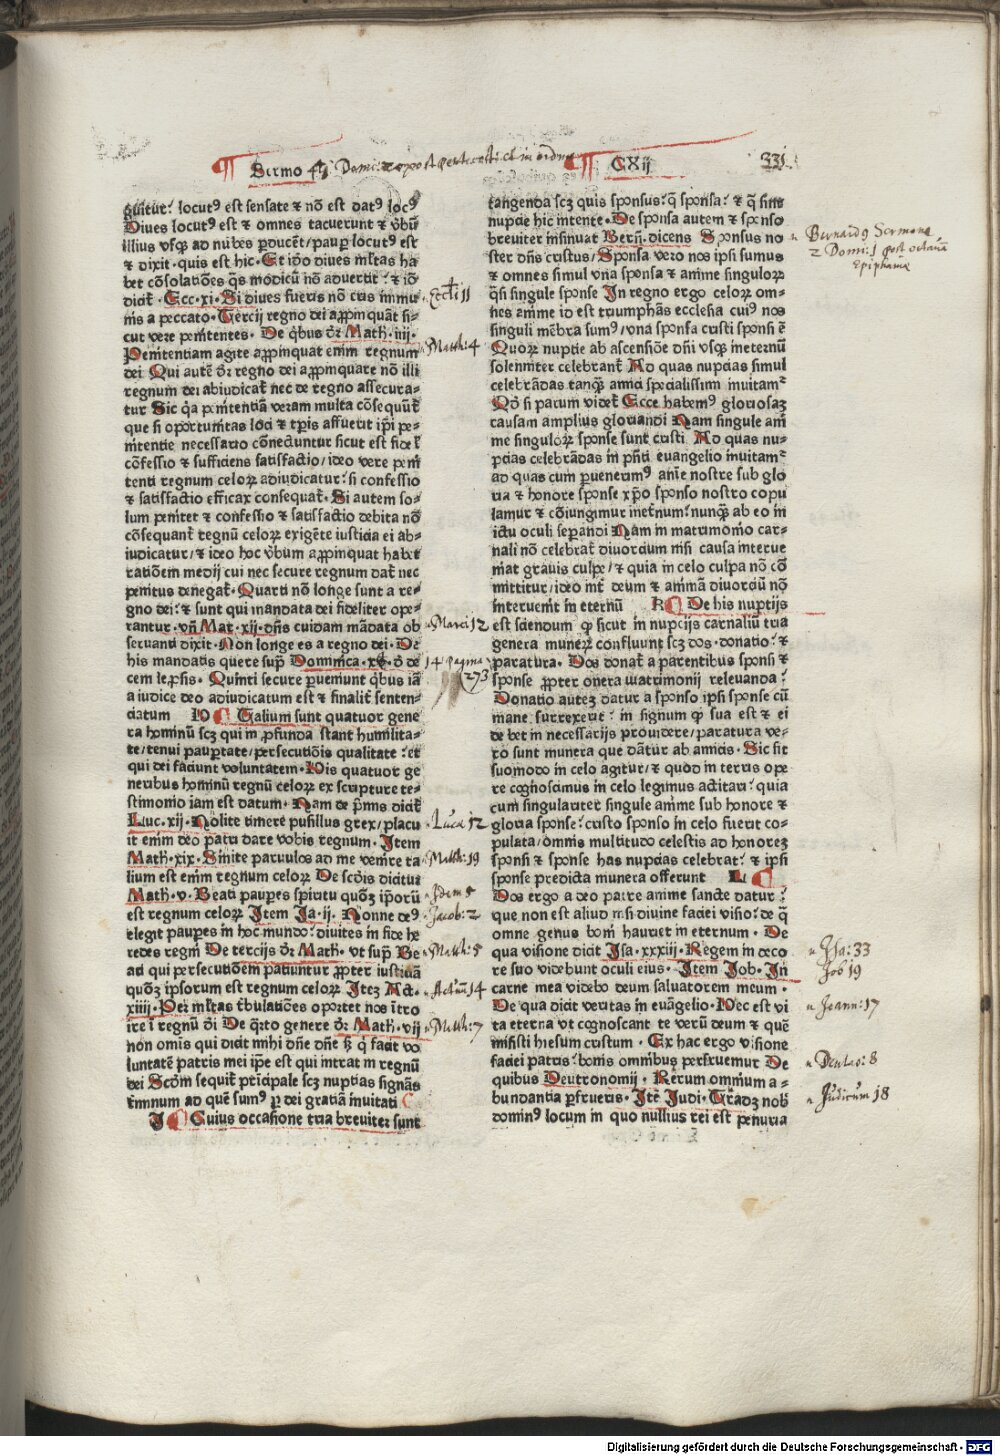 Sermo
CXij
331
guitur? locut⁹ est sensate ⁊ nō est dat⁹ loc⁹
Diues locut⁹ est ⁊ omnes tacuerunt ⁊ v̄bū
illius vsq̄ ad nubes ꝑducēt/ paup̄ locut⁹ est
⁊ dixit · quis est hic · Et ip̄o diues ml̄tas ha
bet cōsolatiōes q̄s modicū nō aduertit? ⁊ iō
dicit̄ · Ecc · xi · Si diues fueris nō eris immu
nis a peccato · Tercij regno dei aꝓpinquāt si-
cut vere penitentes · De qͥbus dr̄ Math · iiij ·
Penitentiam agite aꝓpinquat enim regnum
dei Qui autē dr̄ regno dei aꝓpinquare nō illi
regnum dei abiudicat̄ nec de regno assecura-
tur Sic q̄a penitentiā veram multa cōsequūt̄
que si oportunitas loci ⁊ tꝑis affuerit ip̄i pe-
nitentie necessario cōnectuntur sicut est fidei
cōfessio ⁊ sufficiens satisfactio/ ideo vere peni
tenti regnum celoꝝ adiudicatur? si confessio
⁊ satisfactio efficax consequat̄ · Si autem so-
lum penitet ⁊ confessio ⁊ satisfactio debita nō
cōsequant̄ regnū celoꝝ exigēte iusticia ei ab-
iudicatur/ ⁊ ideo hoc v̄bum aꝓpinquat habet
ratiōem medij cui nec secure regnum dat̄ nec
penitus denegat̄ · Quarti nō longe sunt a re-
gno dei? ⁊ sunt qui mandata dei fideliter ope-
rantur · vn̄ Mat · xij · dn̄s cuidam mādata ob
seruanti dixit · Non longe es a regno dei · De
his mandatis quere sup̄ Dominica · de
cem lep̄sis · Quinti secure ꝑueniunt qͥbus iā
a iudice deo adiudicatum est ⁊ finalit̄ senten-
ciatum Talium sunt quatuor gene
ra hominū scꝫ qui in ꝓfunda stant humilita-
te/ tenui paup̄tate/ persecutiōis qualitate? et
qui dei faciunt voluntatem · His quatuor ge
neribus hominū regnū celoꝝ ex scripture te-
stimonio iam est datum · Nam de p̄mis dicit̄
Luc · xij · Nolite timere pusillus grex/ placu
it enim deo patri dare vobis regnum · Item
Math · xix · Sinite paruulos ad me venire ta
lium est enim regnum celoꝝ De scd̄is dicitur
Math · v · Beati paup̄es spiritu quoꝫ ip̄orū
est regnum celoꝝ Item Ja · ij · Nonne de⁹
elegit paup̄es in hoc mundo? diuites in fide he
redes regni De tercijs dr̄ Math · vt sup̄ Be
ati qui persecutiōem patiuntur ꝓpter iusticiā
quoꝫ ipsorum est regnum celoꝝ Iteꝫ Act ·
xiiij · Per ml̄tas t̄bulatiōes oportet nos ītro
ire ī regnū dei De q̄rto genere dr̄ Math · vij
non omīs qui dicit mihi dn̄e dn̄e sꝫ q̄ facit vo
luntatē patris mei ip̄e est qui intrat in regnū
dei Scd̄m sequit̄ prīcipale scꝫ nuptias signās
Cuius occasione tria breuiter sunt
Eccli 11
Matth: 4
Marci 12
14 pagina
273
Luca 12
Matth: 19
Idem 5
Jacob: 2
Matth: 5
Actuū 14
Matth: 7
tangenda scꝫ quis sponsus? q̄ sponsa? ⁊ q̄ sint
nupcie hic intente · De sponsa autem ⁊ sponso
breuiter insinuat Bern̄ · dicens Sponsus no
ster dn̄s cristus/ Sponsa vero nos ip̄si sumus
⁊ omnes simul vna sponsa ⁊ anime singuloꝝ
q̄si singule sponse In regno ergo celoꝝ om-
nes anime id est triumphās ecclesia cui⁹ nos
singuli mēbra sum⁹/ vna sponsa cristi sponsi ē
Quoꝝ nuptie ab ascensiōe dn̄i vsqꝫ ineternū
solenniter celebrant̄ Ad quas nupcias simul
celebrādas tanqꝫ amici specialissimi inuitamᷣ
Qd̄ si parum videt̄ Ecce habem⁹ gloriosaꝫ
causam amplius gloriandi Nam singule ani
me singuloꝝ sponse sunt cristi · Ad quas nu-
pcias celebrādas in pn̄ti euangelio inuitamᷣ
ad quas cum ꝑuenerim⁹ anīe nostre sub glo
ria ⁊ honore sponse xp̄o sponso nostro copu
lamur ⁊ cōiungimur inet̄num? nunqꝫ ab eo in
ictu oculi sep̄andi Nam in matrimonio car-
nali nō celebrat̄ diuorcium nisi causa interue
niat grauis culpe/ ⁊ quia in celo culpa nō cō
mittitur/ ideo int̄ deum ⁊ animā diuorciū nō
interuenit in eternū K De his nuptijs
est sciendum q̄ sicut in nupcijs carnaliū tria
genera muneꝝ confluunt scꝫ dos · donatio? ⁊
paratura · Dos donat̄ a parentibus sponsi ⁊
sponse ꝓpter onera matrimonij releuanda?
Donatio auteꝫ datur a sponso ipsi sponse cū
mane surrexerit? in signum q̄ sua est ⁊ ei
debet in necessarijs prouidere/ paratura ve-
ro sunt munera que dātur ab amicis · Sic sit
suomodo in celo agitur/ ⁊ quod in terris ope
re cognoscimus in celo legimus actitari? quia
cum singulariter singule anime sub honore ⁊
gloria sponse? cristo sponso in celo fuerit co-
pulata/ omnis multitudo celestis ad honoreꝫ
sponsi ⁊ sponse has nupcias celebrat? ⁊ ipsi
sponse predicta munera offerunt L
Dos ergo a deo patre anime sancte datur?
que non est aliud nisi diuine faciei visio? de q̄
omne genus boni hauriet in eternum · De
qua visione dicit Isa · xxxiij · Regem in deco
re suo videbunt oculi eius · Item Job · In̄
carne mea videbo deum saluatorem meum ·
De qua dicit veritas in euāgelio · Hec est vi
ta eterna vt cognoscant te verū deum ⁊ quē
misisti hiesum cristum · Ex hac ergo visione
faciei patris? bonis omnibus perfruemur De
quibus Deutronomij · Rerum omnium a-
bundantia ꝑfrueris · Itē Judi · Tradꝫ nob̄
domin⁹ locum in quo nullius rei est penuria
Bernard⁹ Sermone
2 Domi: 1 post octauā
Epiphaniæ
Isa: 33
Job 19
Joann: 17
Deutro: 8
Judicum 18
Digitalisierung gefördert durch die Deutsche Forschungsgemeinschaft - DFG